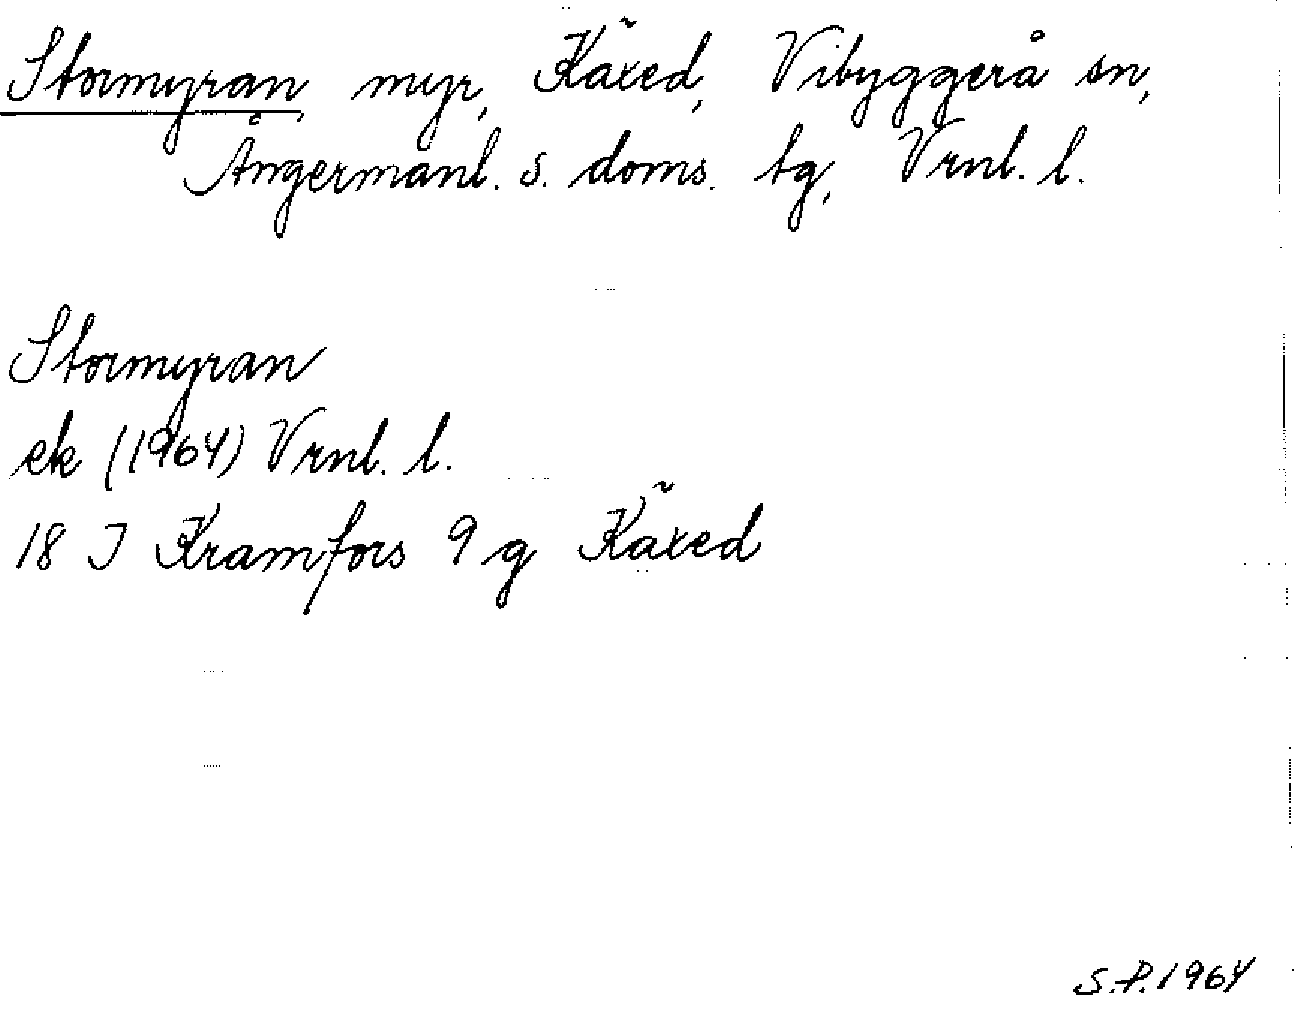 Stormyran myr, Käxed, Vibyggerå sn,
Ångermanl. s. doms. tg, Vrnl. l.
Stormyran
ek (1964) Vrnl. l.
18 I Kramfors 9 g Käxed
S.P. 1964